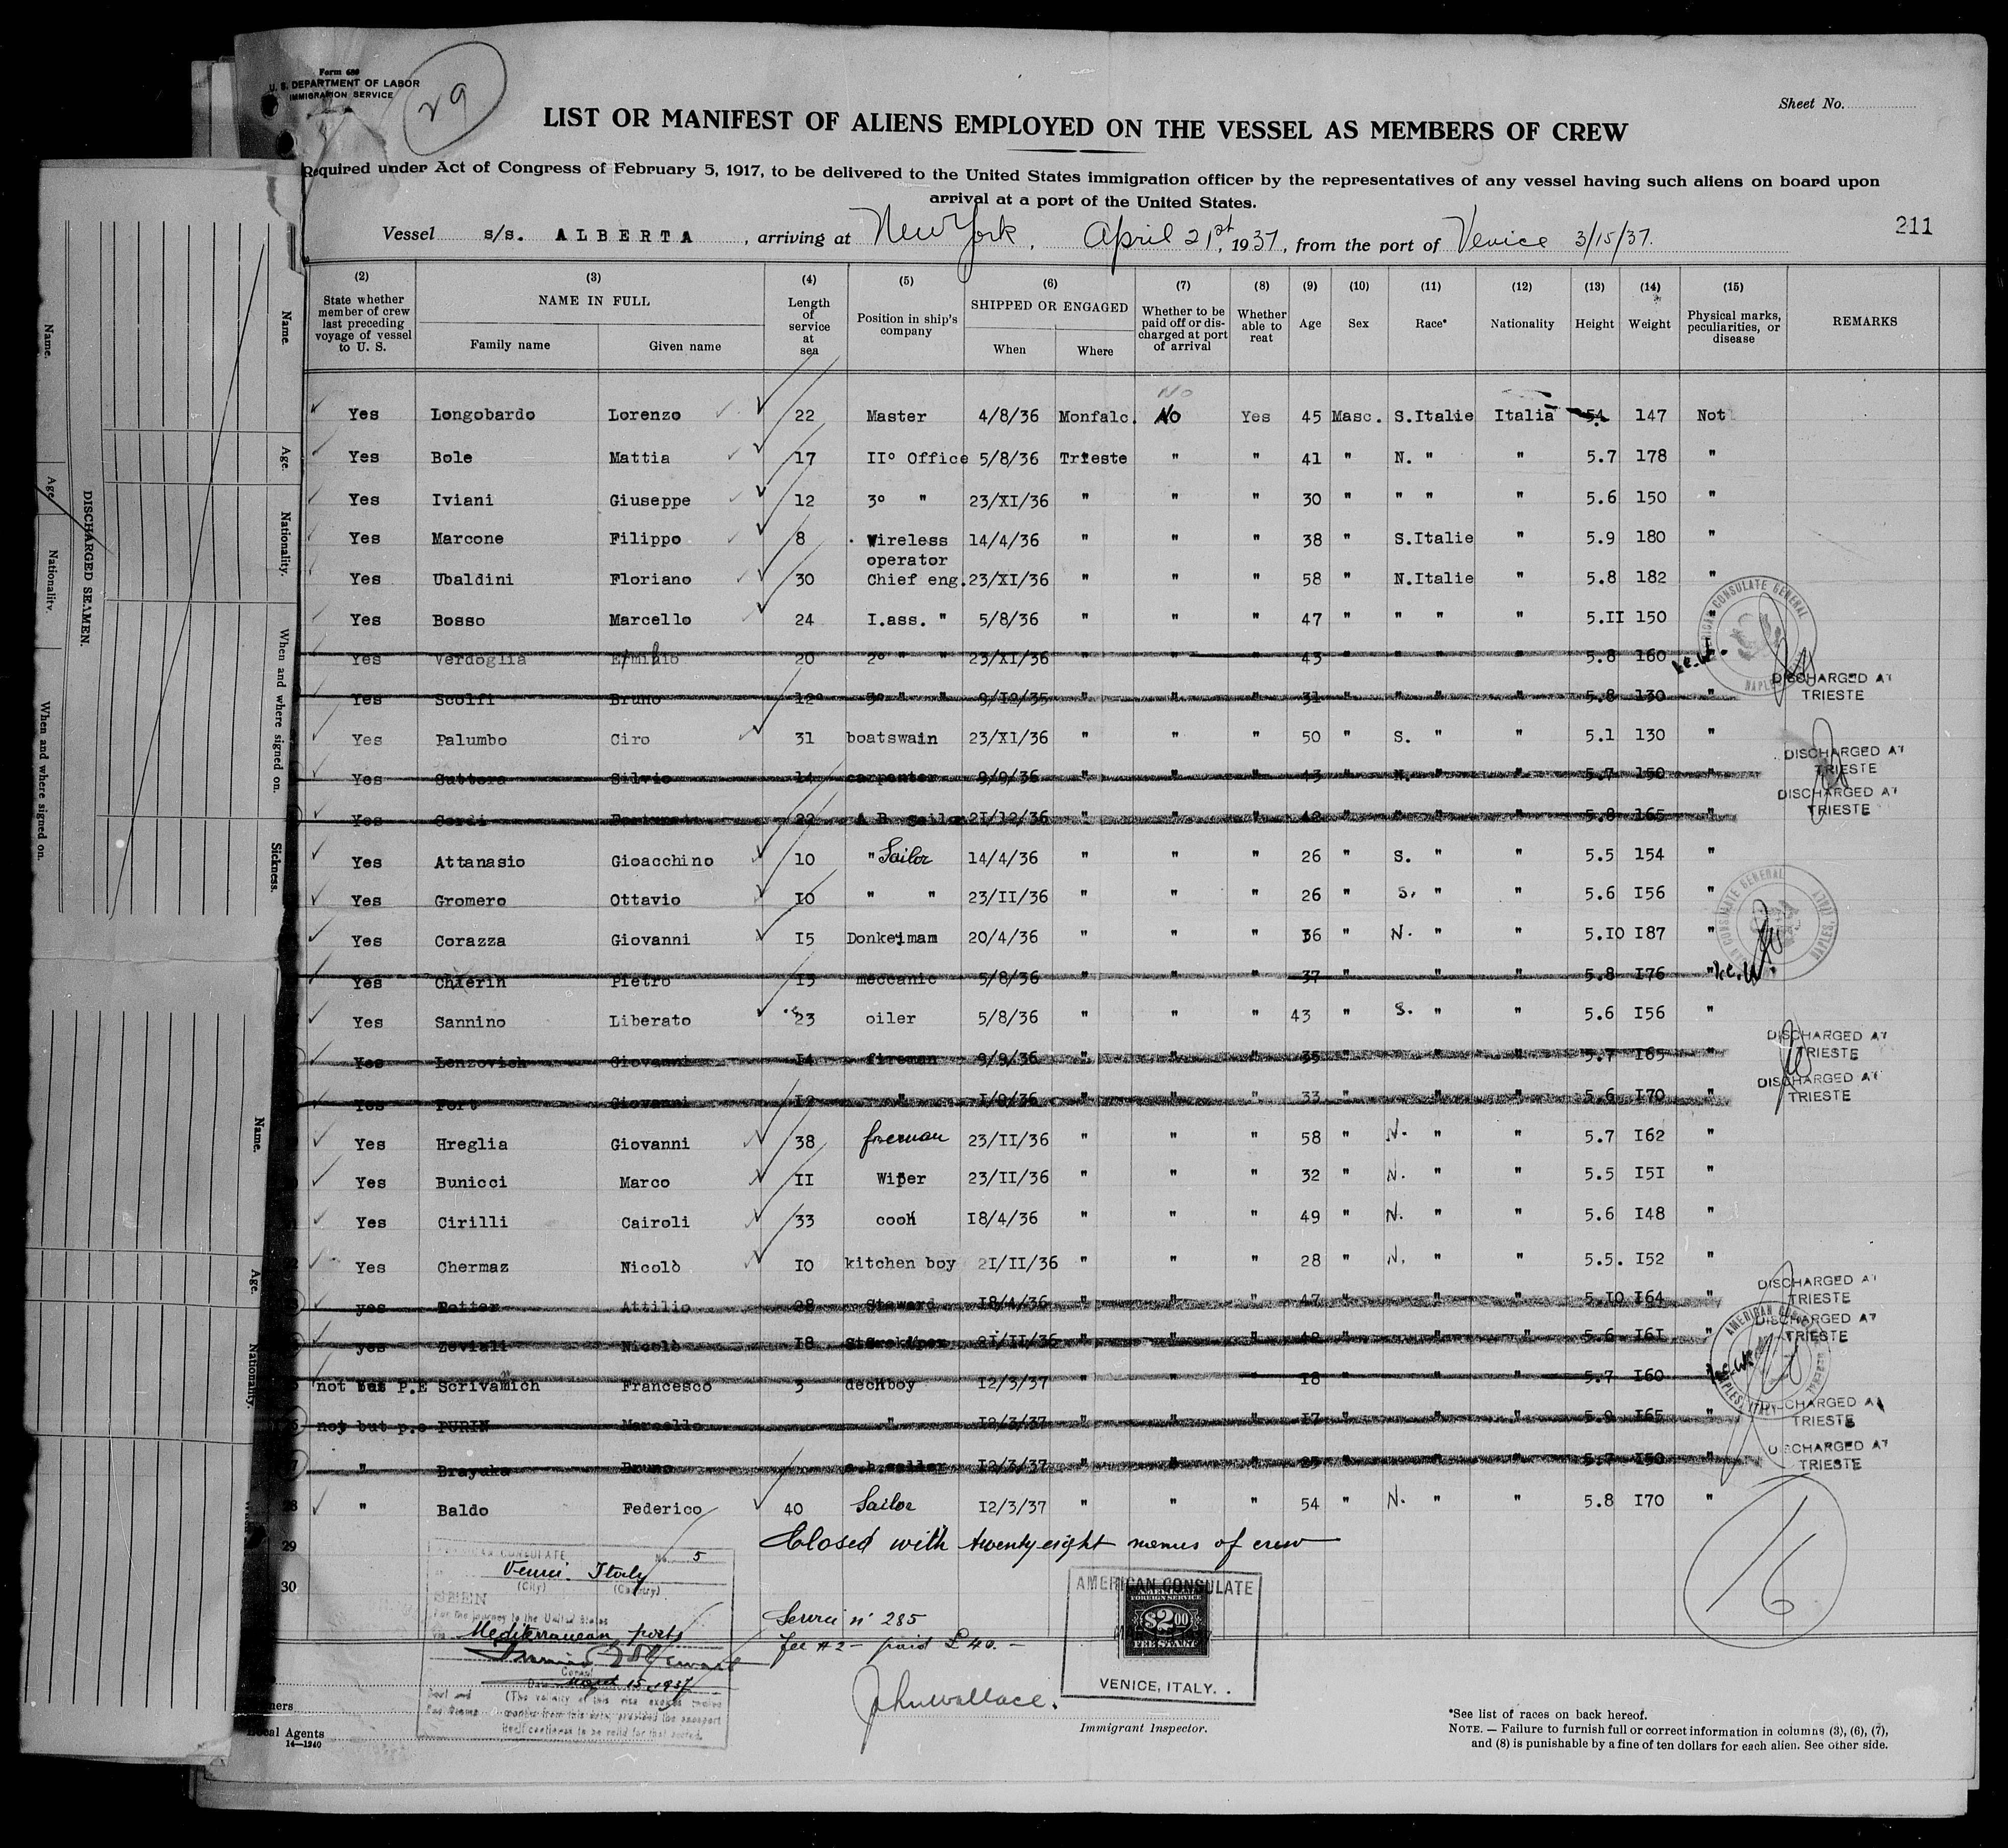 Form 680
U. S. DEPARTMENT OF LABOR
IMMIGRATION SERVICE
29
Sheet No.
LIST OR MANIFEST OF ALIENS EMPLOYED ON THE VESSEL AS MEMBERS OF CREW
Required under Act of Congress of February 5, 1917, to be delivered to the United States immigration officer by the representatives of any vessel having such aliens on board upon
arrival at a port of the United States.
Vessel s/s. ALBERTA, arriving at New York, April 21st, 1937, from the port of Venice 3/15/37.
211
(2) (3) (4) (5) (6) (7) (8) (9) (10) (11) (12) (13) (14) (15)
State whether member of crew last preceding voyage of vessel to U. S.
NAME IN FULL
Family name Given name
Length of service at sea
Position in ship's company
SHIPPED OR ENGAGED
When Where
Whether to be paid off or discharged at port of arrival
Whether able to reat
Age
Sex
Race*
Nationality
Height
Weight
Physical marks, peculiarities, or disease
REMARKS
No
Yes Longobardo Lorenzo 22 Master 4/8/36 Monfalc. No Yes 45 Masc. S.Italie Italia 54 147 Not
Yes Bole Mattia 17 IIº Office 5/8/36 Trieste " " 41 " N. " " 5.7 178 "
Yes Iviani Giuseppe 12 3º " 23/XI/36 " " " 30 " " " " 5.6 150 "
Yes Marcone Filippo 8 Wireless operator 14/4/36 " " " 38 " S.Italie " 5.9 180 "
Yes Ubaldini Floriano 30 Chief eng. 23/XI/36 " " " 58 " N.Italie " 5.8 182 "
Yes Bosso Marcello 24 I.ass. " 5/8/36 " " " 47 " " " " 5.II 150 "
Yes Verdoglia Erminio 20 2º " " 23/XI/36 " " " 43 " " " " 5.8 160
Yes Scolfi Bruno 12 3º " " 9/12/35 " " " 31 " " " " 5.8 130 " DISCHARGED AT TRIESTE
Yes Palumbo Ciro 31 boatswain 23/XI/36 " " " 50 " S. " " 5.1 130 "
Yes Guttora Silvio 14 carpenter 9/9/36 " " " 43 " N. " " 5.7 150 " DISCHARGED AT TRIESTE
Yes 22 A B Sailor 21/12/36 " " " 42 " " " " 5.8 165 " DISCHARGED AT TRIESTE
Yes Attanasio Gioacchino 10 " Sailor 14/4/36 " " " 26 " S. " " 5.5 154 "
Yes Gromero Ottavio IO " " 23/II/36 " " " 26 " S. " " 5.6 I56 "
Yes Corazza Giovanni I5 Donkeiman 20/4/36 " " " 36 " N. " " 5.IO I87 "
Yes Chierin Pietro I3 meccanic 5/8/36 " " " 37 " " " 5.8 I76 "
Yes Sannino Liberato 23 oiler 5/8/36 " " " 43 " S. " " 5.6 I56 "
Yes Lenzovich Giovanni I4 fireman 9/9/36 " " " 35 " " " 5.7 I65 " DISCHARGED AT TRIESTE
Yes Fort Giovanni I2 " I/9/36 " " " 33 " " " 5.6 I70 " DISCHARGED AT TRIESTE
Yes Hreglia Giovanni 38 fireman 23/II/36 " " " 58 " N. " " 5.7 I62 "
Yes Bunicci Marco II Wiper 23/II/36 " " " 32 " N. " " 5.5 I5I "
Yes Cirilli Cairoli 33 cook I8/4/36 " " " 49 " N. " " 5.6 I48 "
Yes Chermaz Nicolò IO kitchen boy 2I/II/36 " " " 28 " N. " " 5.5. I52 "
yes Attilio 28 Steward I8/4/36 " " " 47 " " " 5.IO I64 " DISCHARGED AT TRIESTE
yes Nicolò I8 2I/II/36 " " " 42 " " " 5.6 I6I " DISCHARGED AT TRIESTE
not but P.E Scrivanich Francesco 3 deckboy I2/3/37 " " " I8 " " " 5.7 I60 "
not but p.e PURIN Marcello " I2/3/37 " " " I7 " " " 5.9 I65 " DISCHARGED AT TRIESTE
" Bruno a.b.sailor I2/3/37 " " " 25 " " " 5.7 I50 " DISCHARGED AT TRIESTE
28 " Baldo Federico 40 Sailor I2/3/37 " " " 54 " N. " " 5.8 I70 "
29 Closed with twenty eight names of crew
30
16
AMERICAN CONSULATE GENERAL
NAPLES, ITALY
AMERICAN CONSULATE No. 5
Venice Italy
(City) (Country)
SEEN
For the journey to the United States
via Mediterranean ports
Consul
Date March 15, 1937
(The validity of this visa expires twelve
months from this date, provided the passport
itself continues to be valid for that period.
Service nº 285
fee $2 - paid £ 40. -
AMERICAN CONSULATE
FOREIGN SERVICE
$2.00
FEE STAMP
VENICE, ITALY.
John Wallace.
Immigrant Inspector.
Local Agents
14—1240
*See list of races on back hereof.
NOTE. — Failure to furnish full or correct information in columns (3), (6), (7),
and (8) is punishable by a fine of ten dollars for each alien. See other side.
DISCHARGED SEAMEN.
Name. Age. Nationality. When and where signed on.
Name. Age. Nationality. When and where signed on. Sickness.
Name. Age. Nationality.